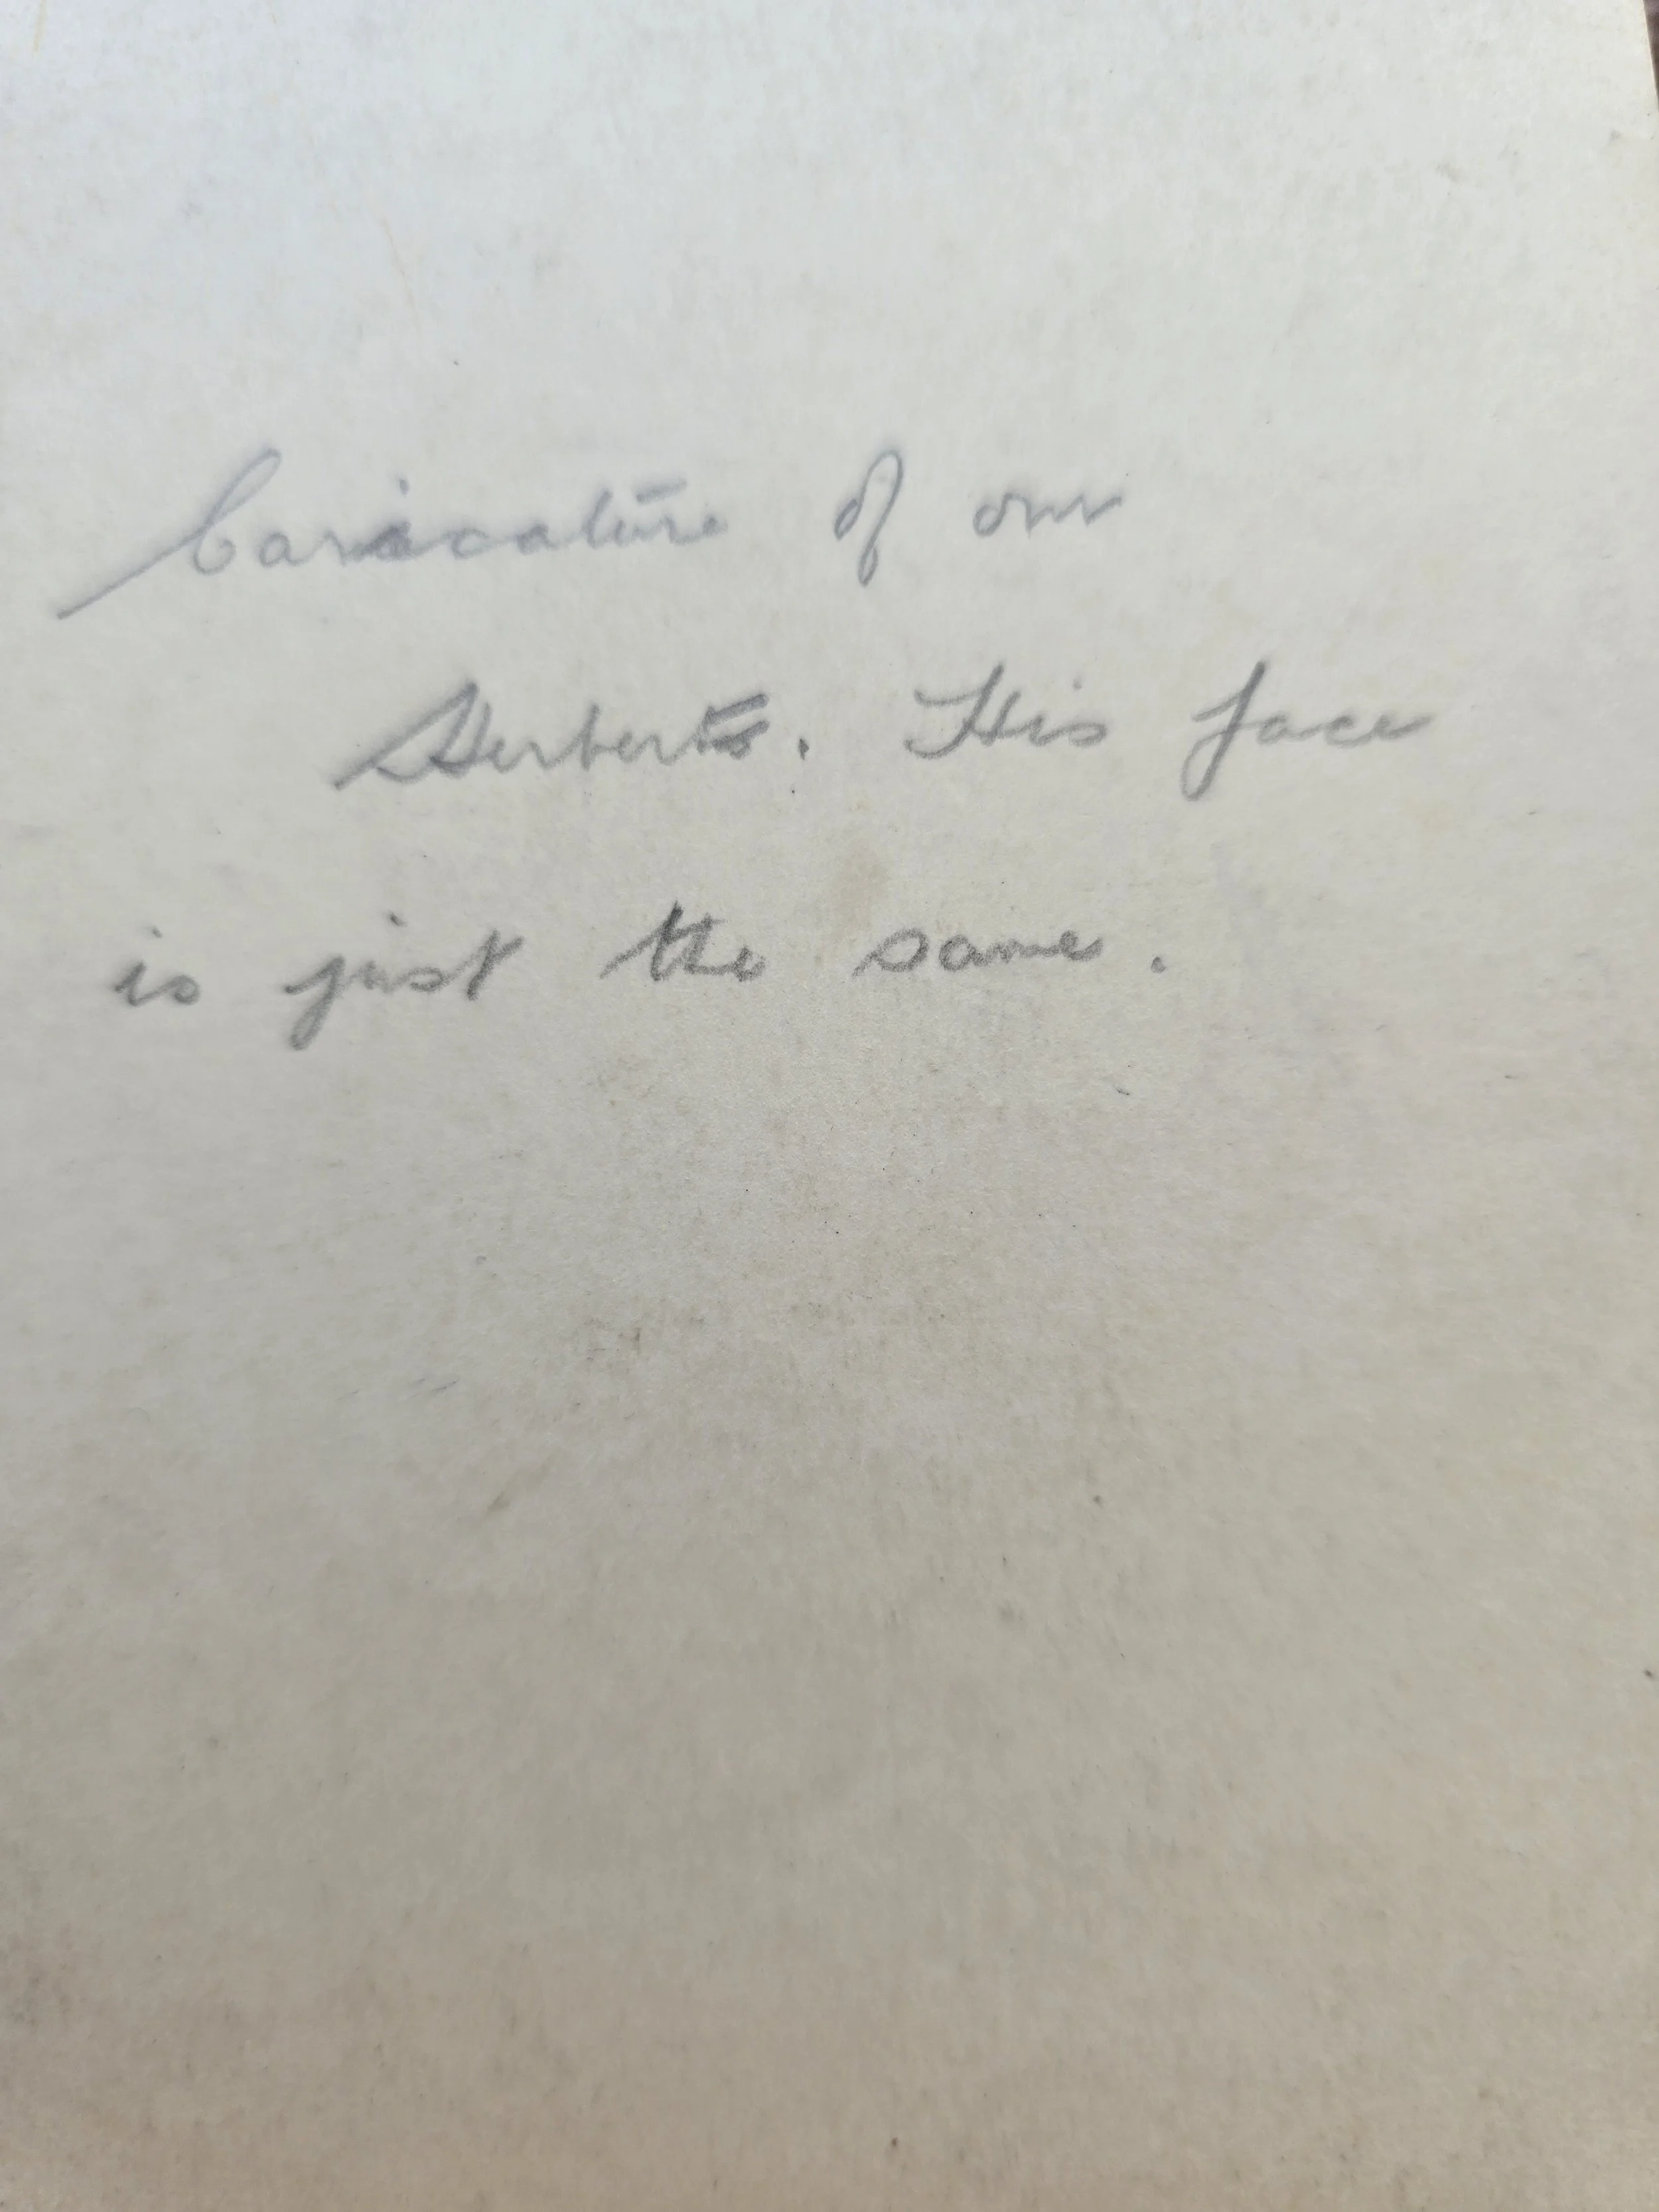 Caricature of our
Herbert. His face
is just the same.